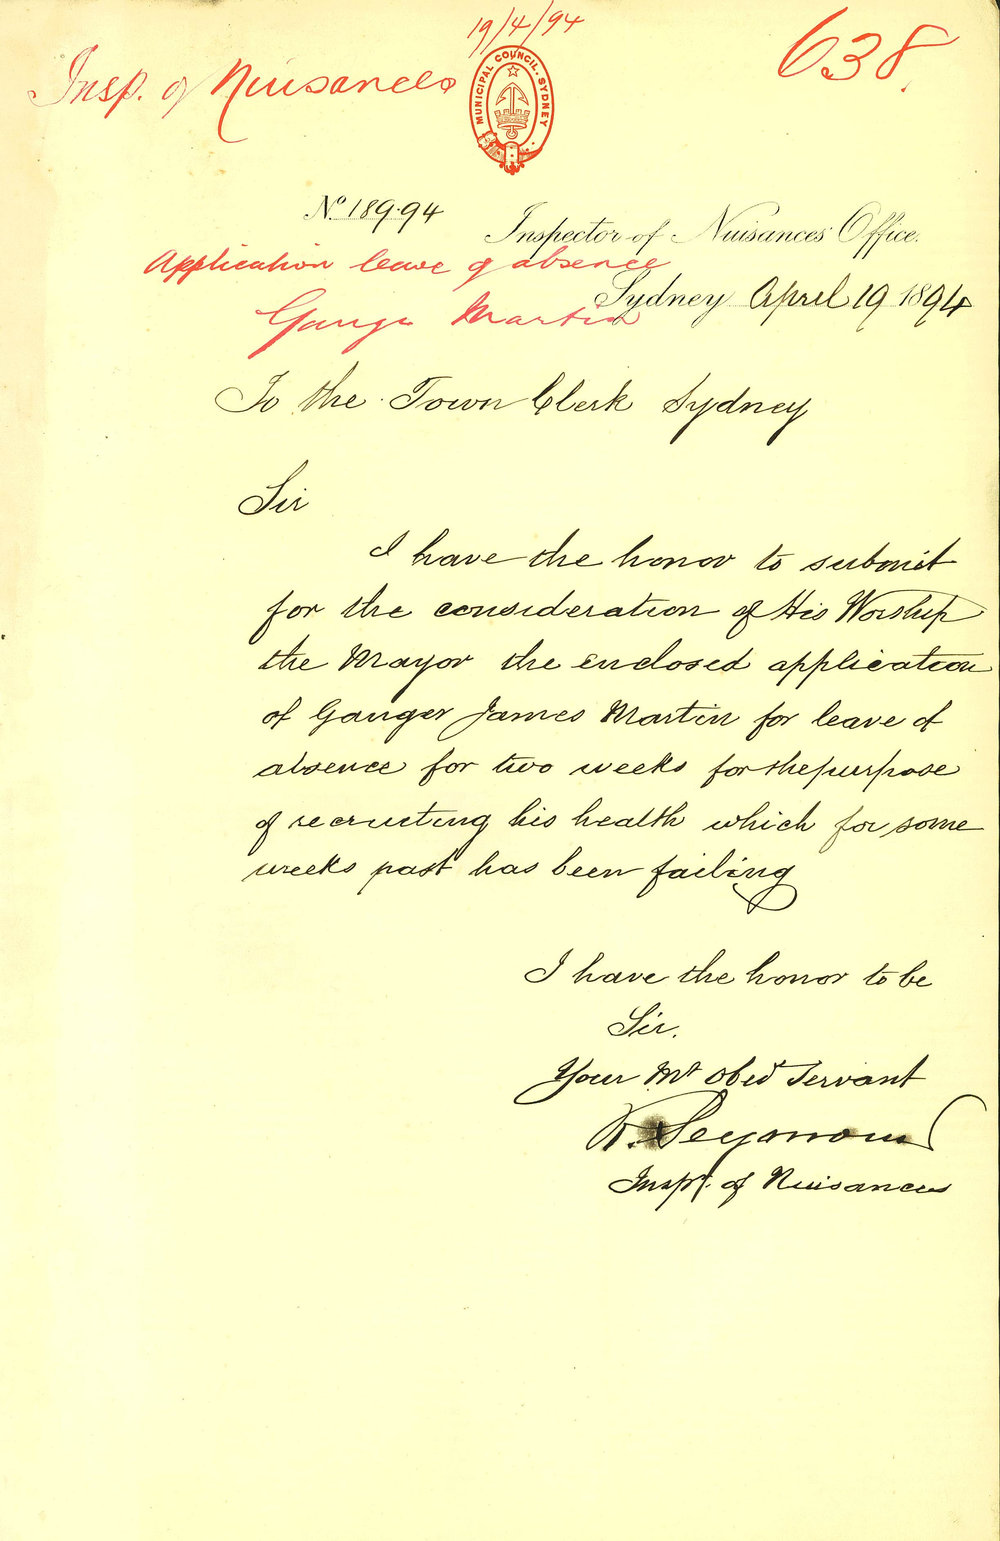 19/4/94
638.
Insp. of Nuisances
MUNICIPAL COUNCIL. SYDNEY
No 189.94
Inspector of Nuisances' Office.
Application leave of absence
Sydney April 19 1894
Ganger Martin
To the Town Clerk Sydney
Sir
I have the honor to submit
for the consideration of His Worship
the Mayor the enclosed application
of Ganger James Martin for leave of
absence for two weeks for the purpose
of recruiting his health which for some
weeks past has been failing
I have the honor to be
Sir.
Your Mt Obed Servant
R. Seymour
Inspr. of Nuisances